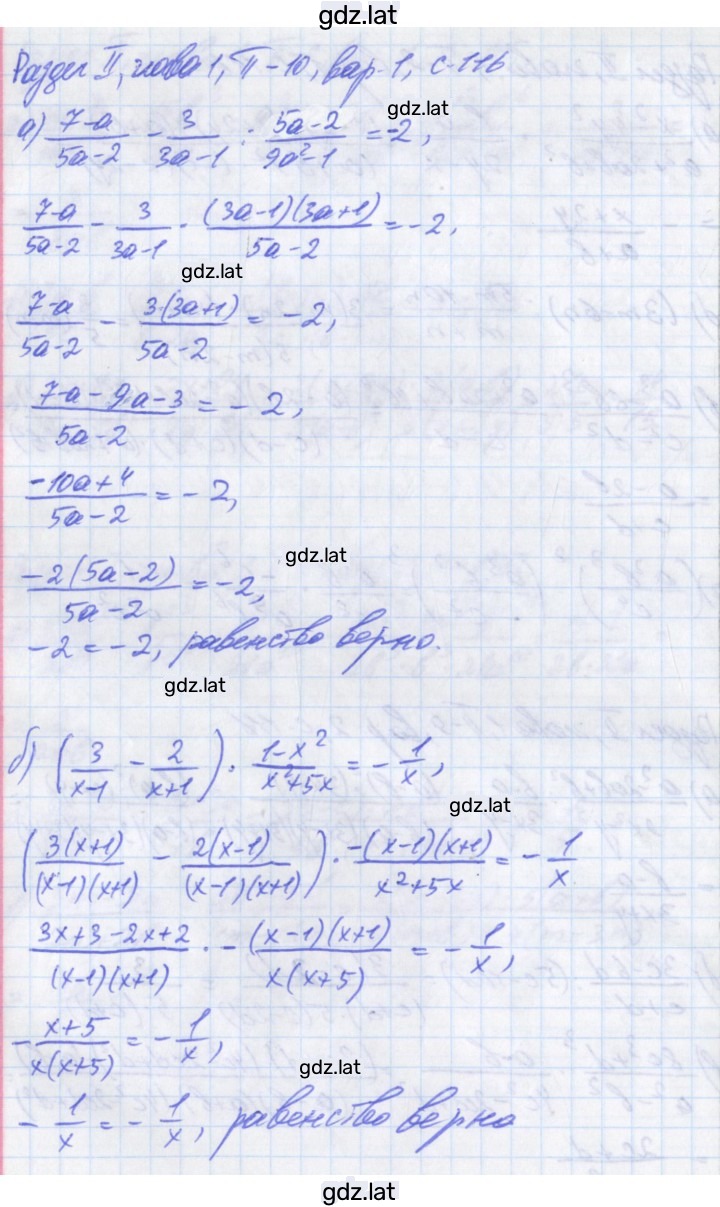 gdz.lat
Раздел II, глава 1, П-10, вар 1, с-116
gdz.lat
а) (7-a)/(5a-2) - 3/(3a-1) : (5a-2)/(9a²-1) = -2,
(7-a)/(5a-2) - 3/(3a-1) · ((3a-1)(3a+1))/(5a-2) = -2,
gdz.lat
(7-a)/(5a-2) - (3(3a+1))/(5a-2) = -2,
(7-a-9a-3)/(5a-2) = -2,
(-10a+4)/(5a-2) = -2,
gdz.lat
(-2(5a-2))/(5a-2) = -2,
-2 = -2, равенство верно.
gdz.lat
б) (3/(x-1) - 2/(x+1)) · (1-x²)/(x²+5x) = -1/x,
gdz.lat
((3(x+1))/((x-1)(x+1)) - (2(x-1))/((x-1)(x+1))) · (-(x-1)(x+1))/(x²+5x) = -1/x
(3x+3-2x+2)/((x-1)(x+1)) · -((x-1)(x+1))/(x(x+5)) = -1/x,
-(x+5)/(x(x+5)) = -1/x,
gdz.lat
-1/x = -1/x, равенство верно
gdz.lat